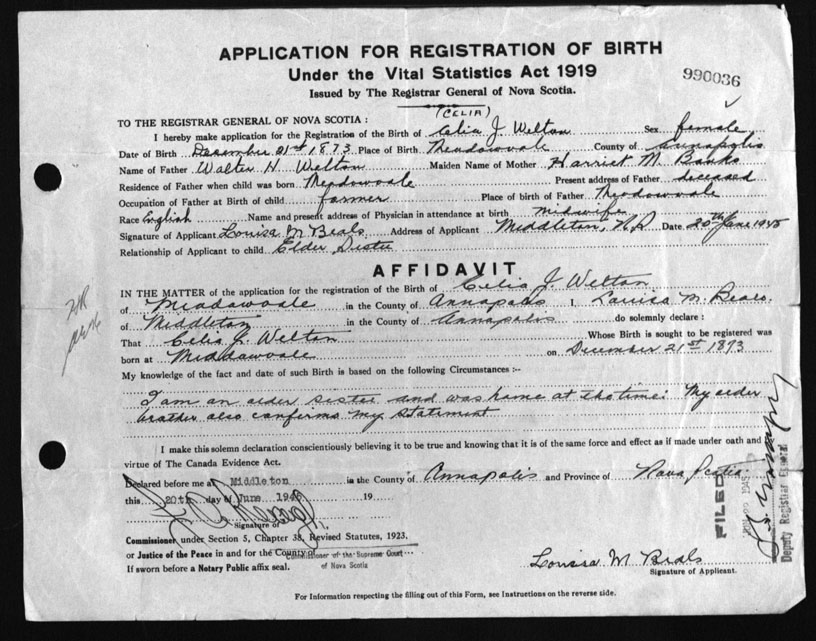 APPLICATION FOR REGISTRATION OF BIRTH
Under the Vital Statistics Act 1919
990036
Issued by The Registrar General of Nova Scotia.
(CELIA)
TO THE REGISTRAR GENERAL OF NOVA SCOTIA :
I hereby make application for the Registration of the Birth of Celia J. Welton Sex female
Date of Birth December 21st 1873 Place of Birth Meadowvale County of Annapolis
Name of Father Walter H. Welton Maiden Name of Mother Harriet M. Banks
Residence of Father when child was born Meadowvale Present address of Father deceased
Occupation of Father at Birth of child farmer Place of birth of Father Meadowvale
Race English Name and present address of Physician in attendance at birth midwife
Signature of Applicant Louisa M Beals Address of Applicant Middleton, N.S Date 20th June 1945
Relationship of Applicant to child Elder Sister
AFFIDAVIT
IN THE MATTER of the application for the registration of the Birth of Celia J. Welton
of Meadowvale in the County of Annapolis I, Louisa M. Beals
of Middleton in the County of Annapolis do solemnly declare :
That Celia J. Welton Whose Birth is sought to be registered was
born at Meddowvale on December 21st 1873
My knowledge of the fact and date of such Birth is based on the following Circumstances :-
I am an older sister and was home at the time. My older
brother also confirms my statement
I make this solemn declaration conscientiously believing it to be true and knowing that it is of the same force and effect as if made under oath and
virtue of The Canada Evidence Act.
Declared before me at Middleton in the County of Annapolis and Province of Nova Scotia
this 20th day of June 1945 19
Signature of
Commissioner under Section 5, Chapter 38, Revised Statutes, 1923,
or Justice of the Peace in and for the County of
Commissioner of the Supreme Court
of Nova Scotia
If sworn before a Notary Public affix seal.
Louisa M Beals
Signature of Applicant.
FILED
1945
Deputy Registrar General
For Information respecting the filling out of this Form, see Instructions on the reverse side.